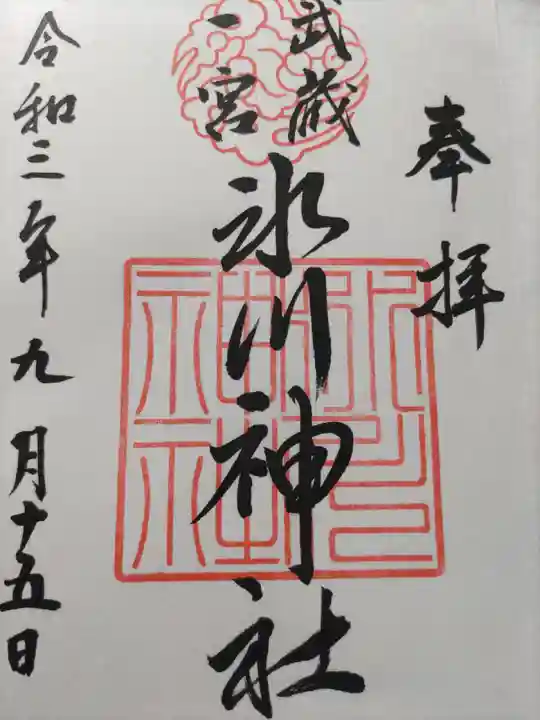 奉拝
武蔵
一宮
氷川神社
令和三年九月十五日
氷川
神社